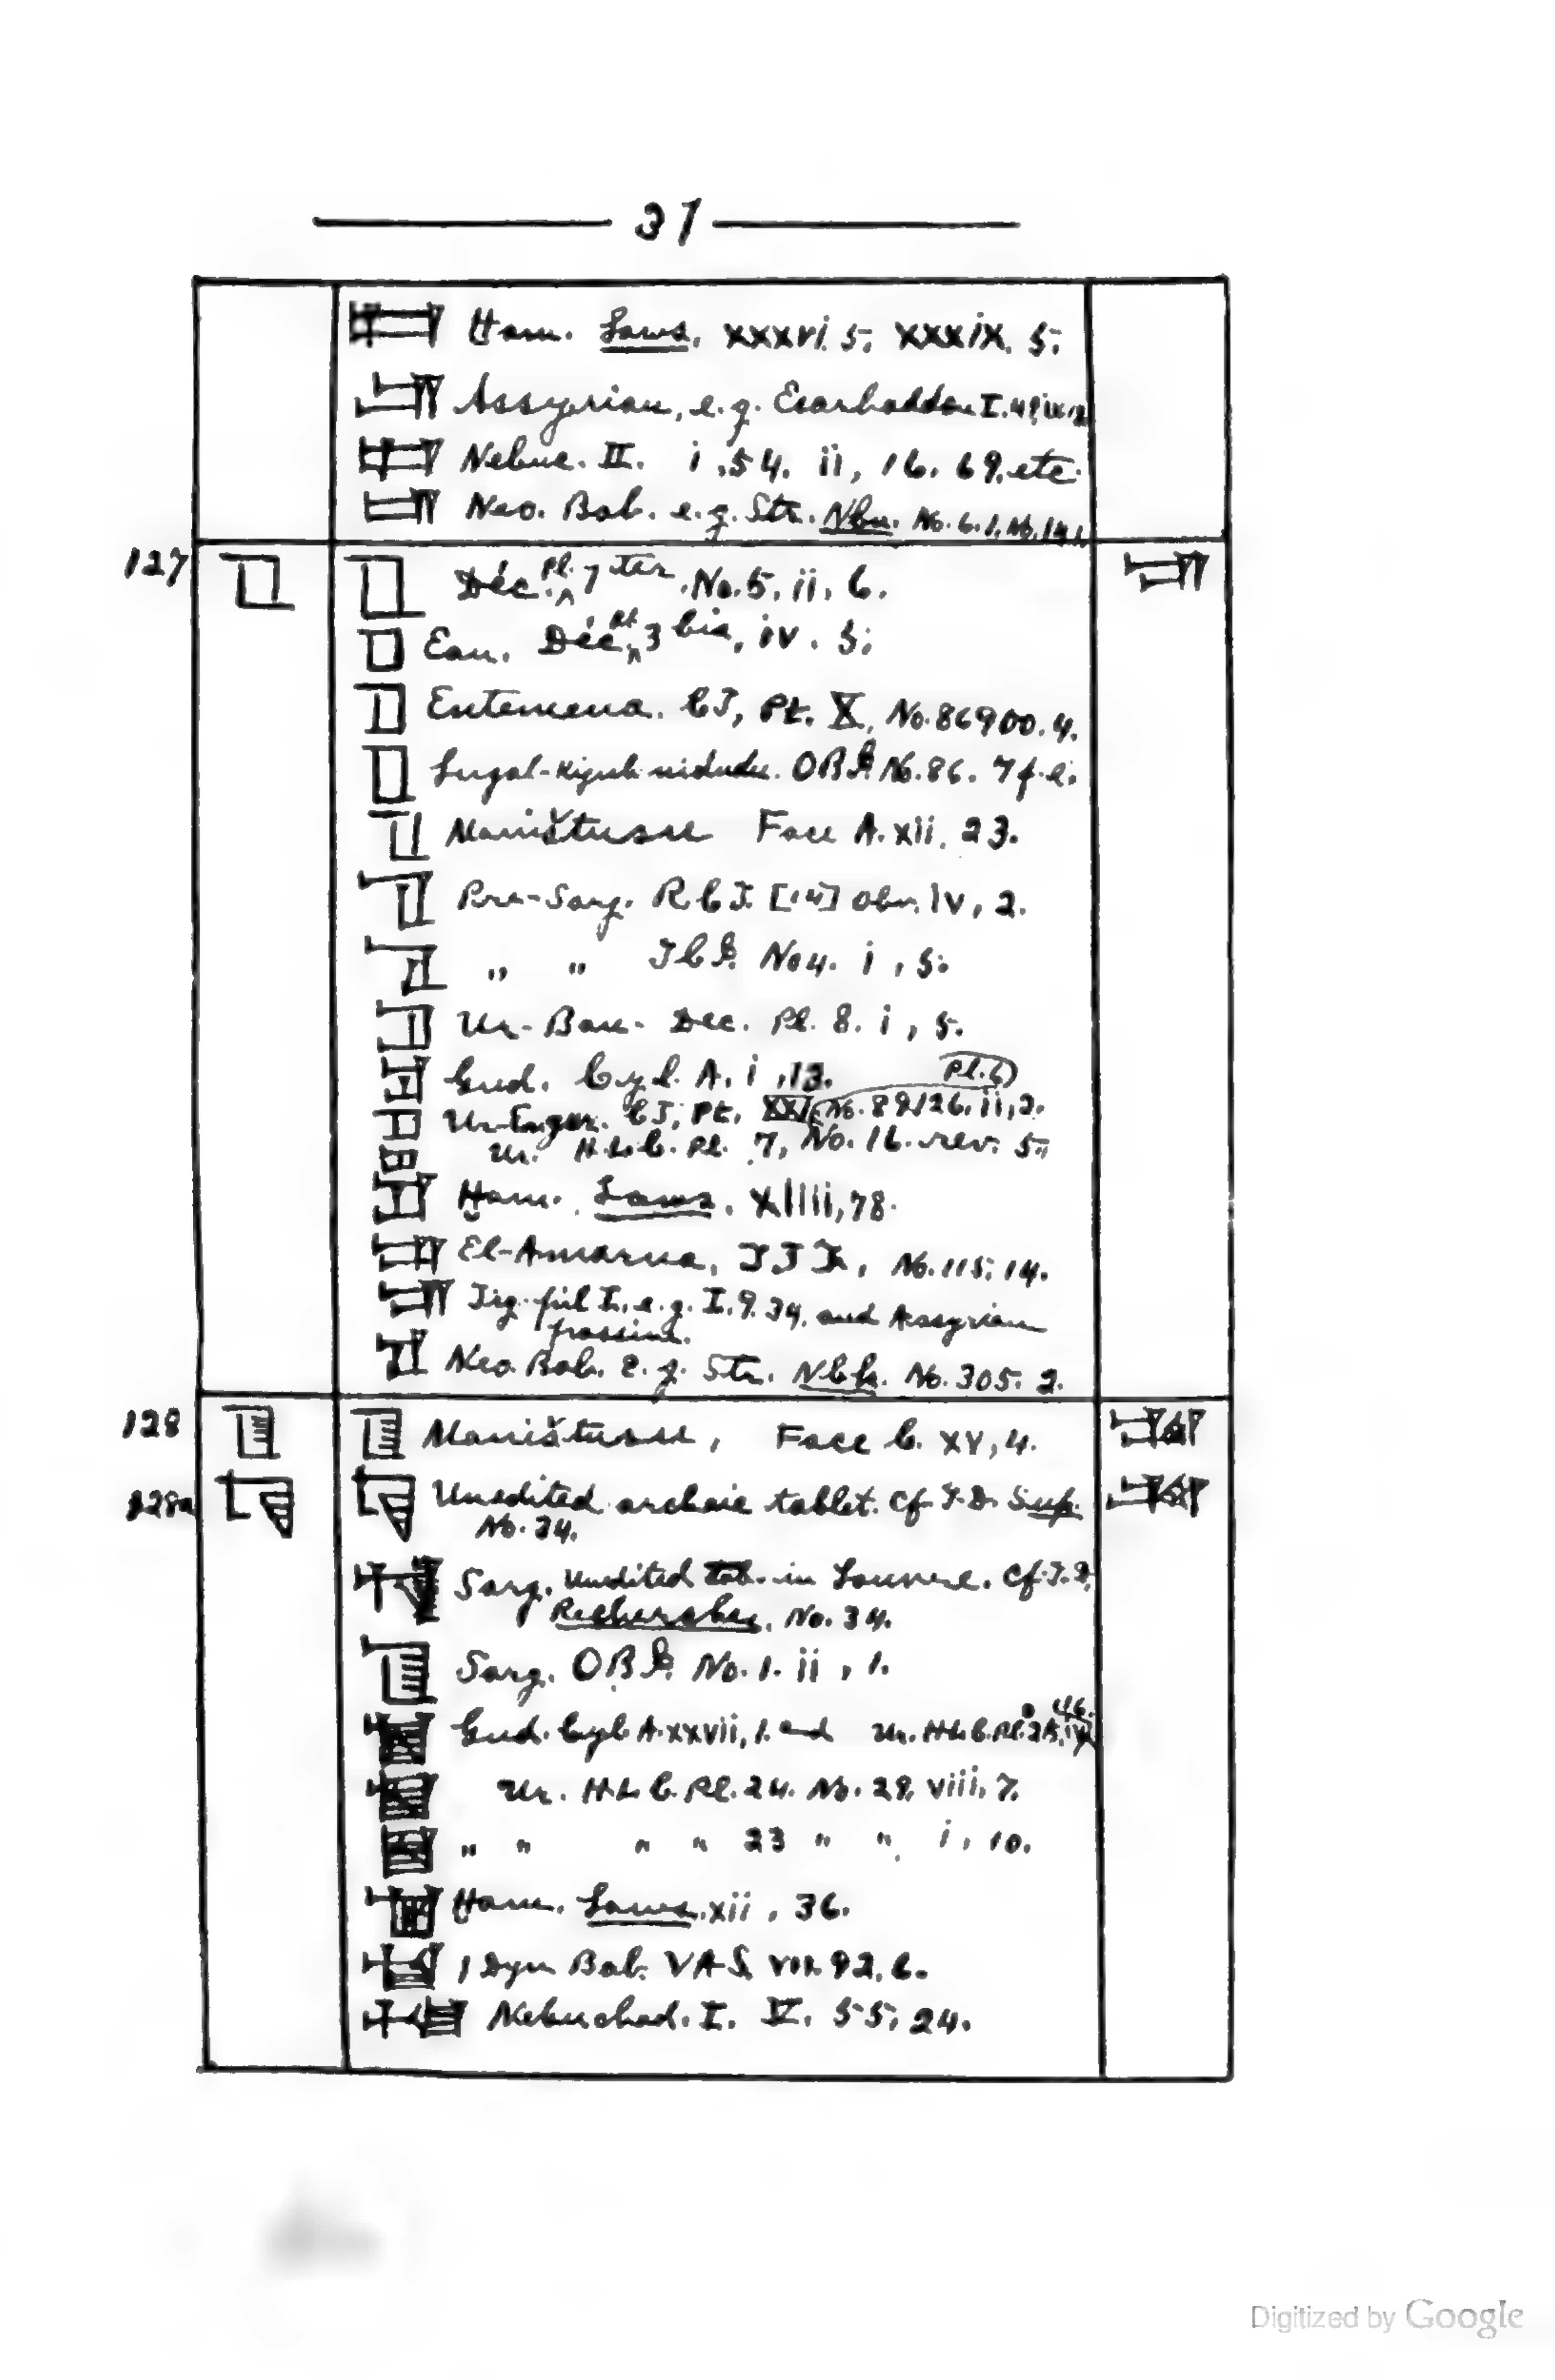 37
Ham. Laws, xxxvi. 5; xxxix. 5;
Assyrian, e.g. Esarhaddon I.
Nebuc. II. i, 54. ii, 16. 69. etc.
Neo. Bab. e.g. Str. Nbn. No. 6. 1,
127
Déc. Pl. 7 ter, No. 5. ii, 6.
Ean. Déc. Pl. 3 bis, iv. 5;
Entemena. CT, Pt. X, No. 86900. 4.
Lugal-kigub-nidudu. OBI No. 86. 7 f. e.
Maništusu Face A. xii, 23.
Pre-Sarg. RCT. [14] obv. iv, 2.
" " No 4. i, 5.
Ur-Bau. Dec. Pl. 8. i, 5.
Gud. Cyl. A. i, 13. Pl. 6
Ur-Engur. CT, Pt. XXI, No. 89126. ii, 2.
Ur. H.L.C. Pl. 7, No. 16. rev. 5;
Ham. Laws, xliii, 78.
El-Amarna, No. 115, 14.
Tig-pil I. e.g. I. 9. 34, and Assyrian
passim.
Neo. Bab. e.g. Str. Nbk. No. 305. 2.
128
Maništusu, Face C. xv, 4.
128a
Unedited archaic tablet. Cf. T.D. Sup.
No. 34.
Sarg. Unedited Tab. in Louvre. Cf. T.D.
Recherches, No. 34.
Sarg. OBI. No. 1. ii, 1.
Gud. Cyl. A. xxvii, 1. and Ur. H.L.C. Pl.
Ur. H.L.C. Pl. 24. No. 29. viii, 7.
" " " " 23 " " i, 10.
Ham. Laws. xii, 36.
1 Dyn Bab. VAS. VII. 92, 6.
Nebuchad. I. V. 55, 24.
Digitized by Google